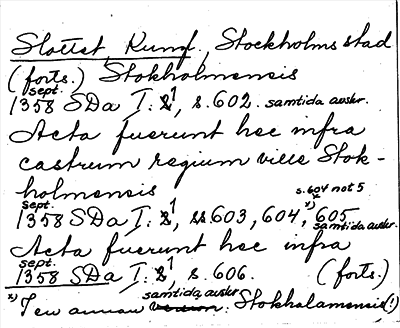 Slottet, Kungl., Stockholms stad
(forts.) Stokholmensis
sept.
1358 SDa I:1, s. 602. samtida avskr.
Acta fuerunt hec infra
castrum regium ville Stok-
holmensis
s. 604 not 5
sept.
1358 SDa I:1, ss 603, 604, 605 x)
samtida avskr.
Acta fuerunt hec infra
sept.
1358 SDa I:1, s. 606. (forts.)
samtida avskr
x) I en annan : Stokhalamensis(!)